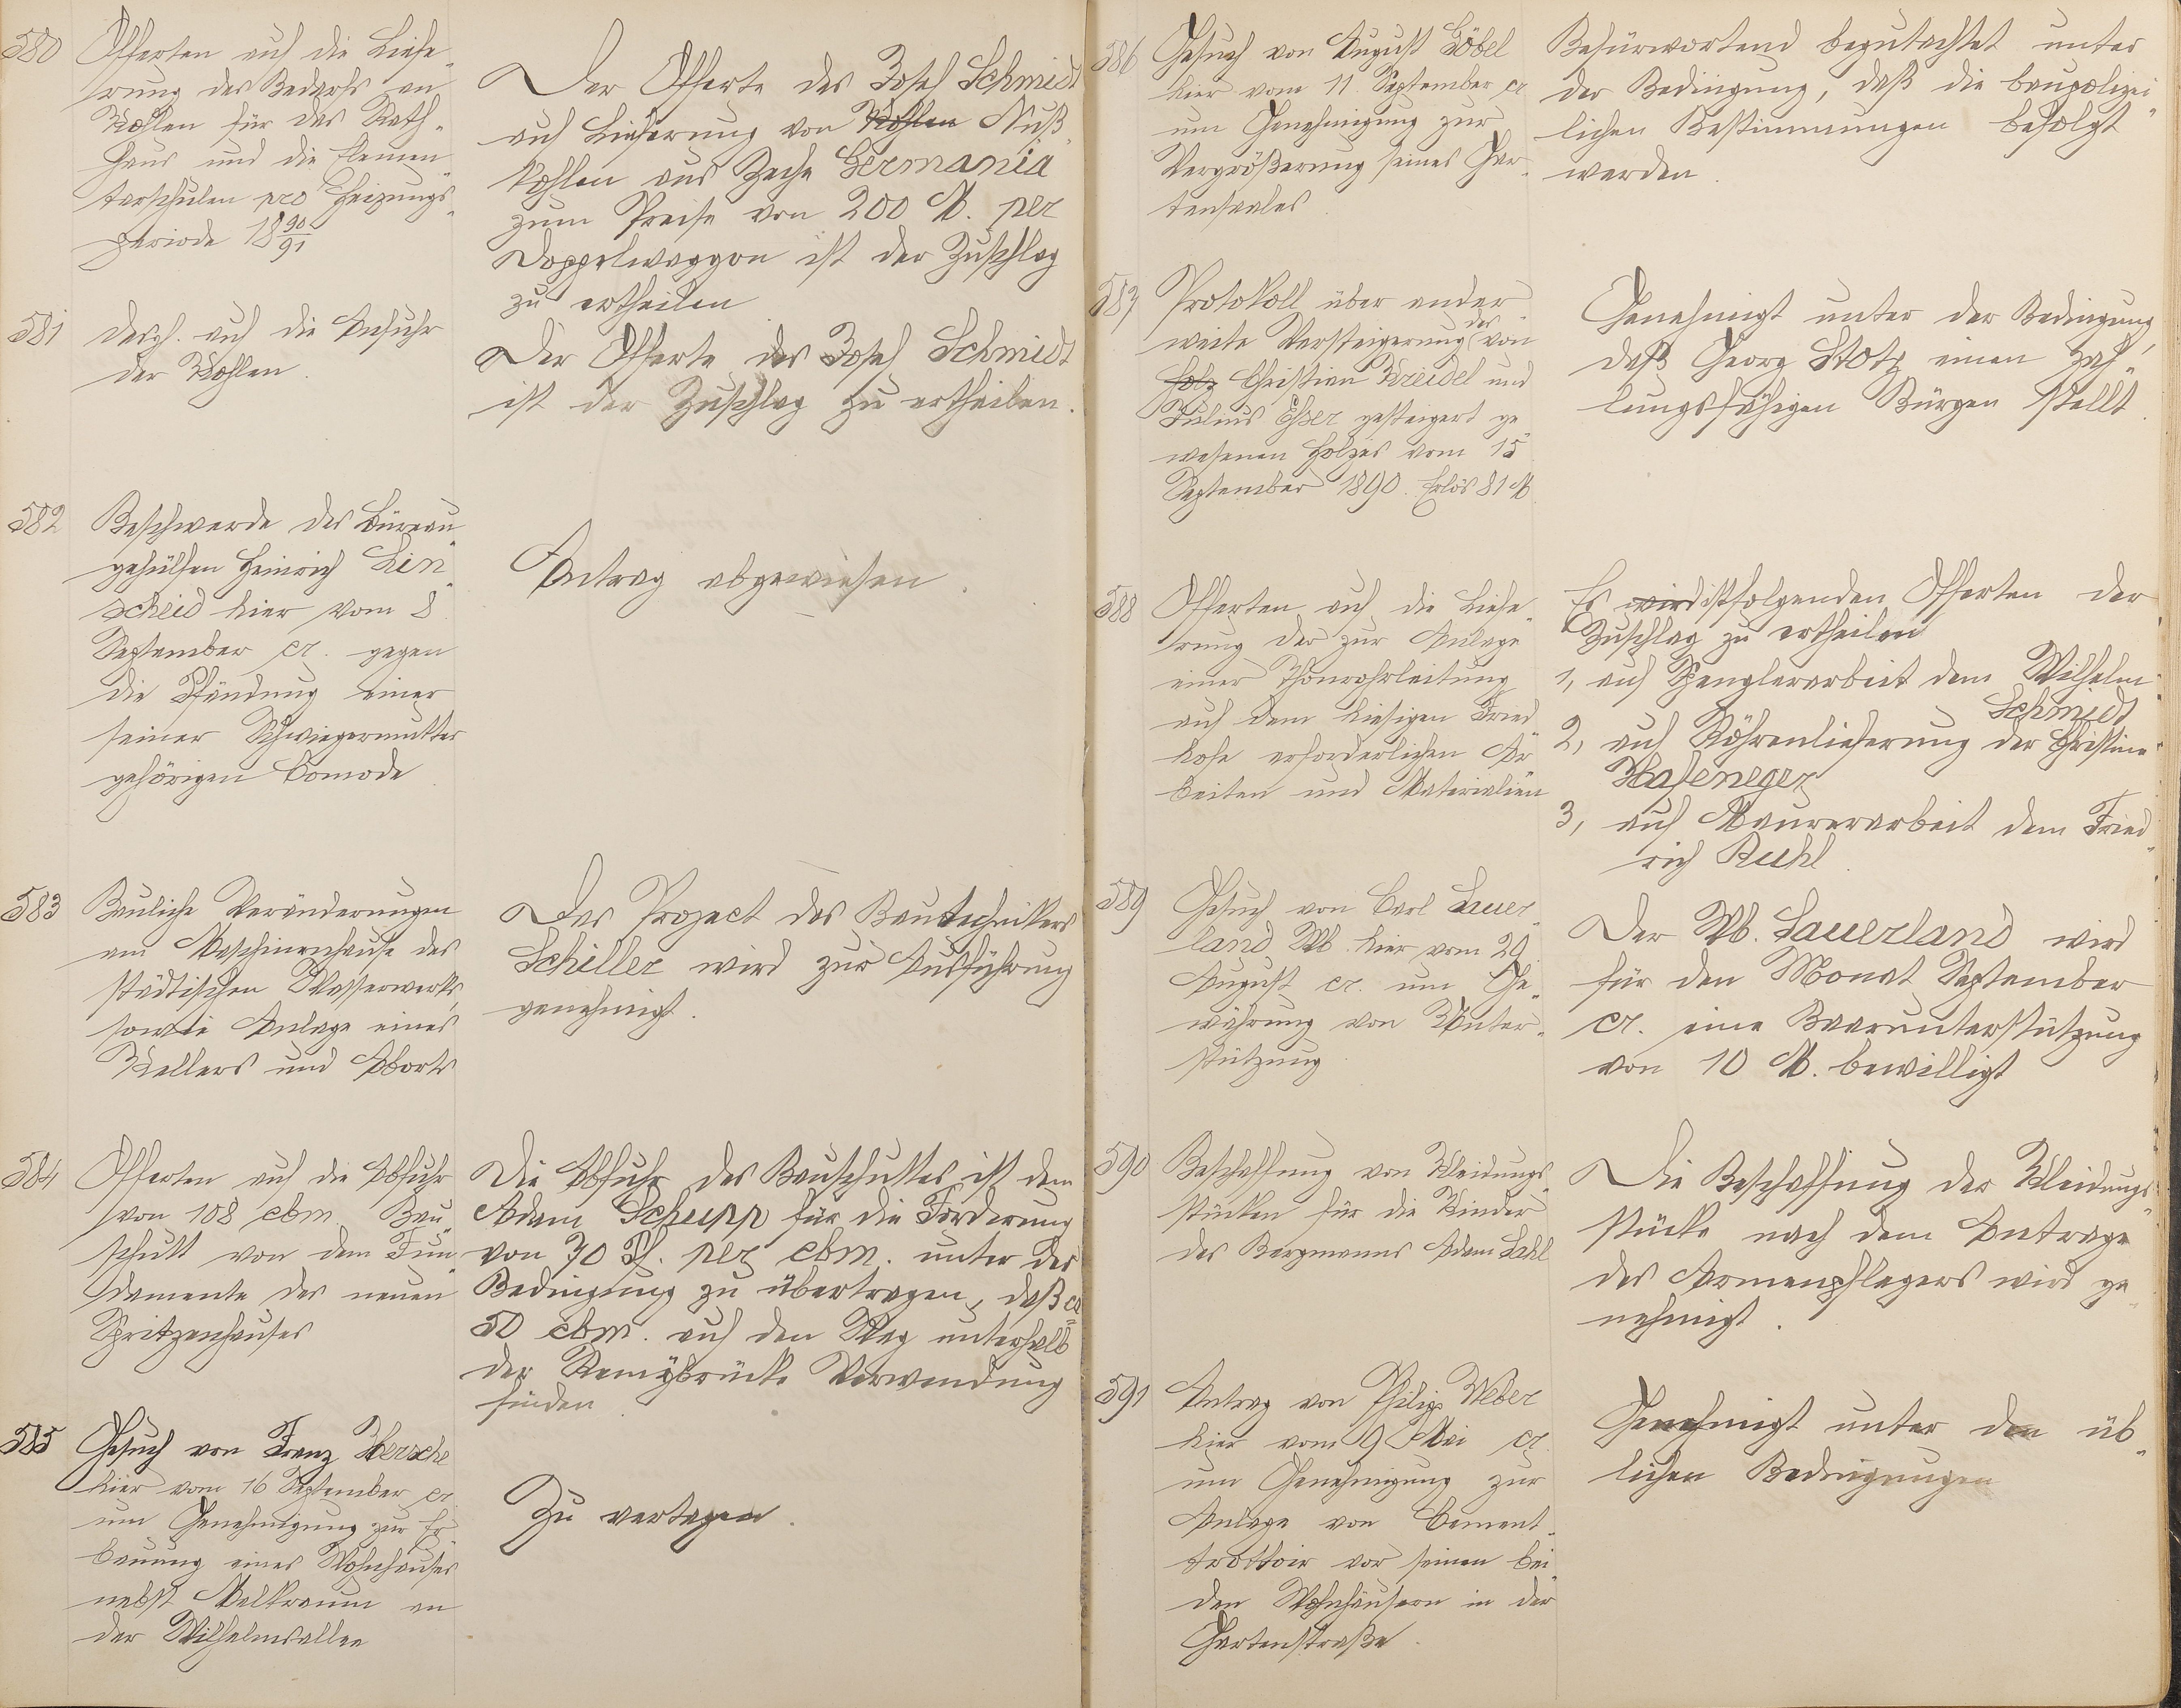 580
Offerten auf die Liefe-
rung des Bedarfs an
Kohlen für das Rath-
haus und die Elemen-
tarschulen pro Heizungs-
periode 18 90/91
Der Offerte des Josef Schmidt
auf Lieferung von Kohlen Nuß-
kohlen aus Zeche Germania
zum Preise von 200 M. per
Doppelwaggon ist der Zuschlag
zu ertheilen
581
desgl. auf die Anfuhr
der Kohlen.
Der Offerte des Josef Schmidt
ist der Zuschlag zu ertheilen.
582
Beschwerde des Büreau-
gehülfen Heinrich Lin-
scheid hier vom 8.
September cr. gegen
die Pfändung einer
seiner Schwiegermutter
gehörigen Comode
Antrag abgewiesen.
583
Bauliche Veränderungen
am Maschinenhause des
städtischen Wasserwerks,
sowie Anlage eines
Kellers und Aborts
Das Project des Bautechnikers
Schiller wird zur Ausführung
genehmigt.
584
Offerten auf die Abfuhr
von 108 cbm Bau-
schutt von dem Fun-
damente des neuen
Spritzenhauses
Die Abfuhr des Bauschuttes ist dem
Adam Schupp für die Forderung
von 70 Pf. per cbm. unter der
Bedingung zu übertragen, daß ca
50 cbm. auf den Weg unterhalb
der Remybrücke Verwendung
finden.
585
Gesuch von Franz
hier vom 16 September cr.
um Genehmigung zur Er-
bauung eines Wohnhauses
nebst Melkraum an
der Wilhelmsallee
Zu vertagen.
586
Gesuch von August Göbel
hier vom 11 September cr
um Genehmigung zur
Vergrößerung seines Gar-
tensaales.
Befürwortend begutachtet unter
der Bedingung, daß die baupolizei-
lichen Bestimmungen befolgt
werden.
587
Protokoll über ander-
weite Versteigerung des von
Holz Christian Kreidel und
Julius Esser gesteigert ge-
wesenen Holzes vom 15
September 1890. Erlös 81 M
Genehmigt unter der Bedingung,
daß Georg Stotz einen zah-
lungsfähigen Bürgen stellt.
588
Offerten auf die Liefe-
rung der zur Anlage
einer Thonrohrleitung
auf dem hiesigen Fried-
hofe erforderlichen Ar-
beiten und Materialien
Es wird ist folgenden Offerten der
Zuschlag zu ertheilen
1, auf Spenglerarbeit dem Wilhelm
Schmidt
2, auf Röhrenlieferung der Christine
Hafeneger
3, auf Maurerarbeit dem Fried-
rich Ruhl.
589
Gesuch von Carl Sauer-
land Wb. hier vom 20.
August cr. um Ge-
währung von Unter-
stützung.
Der Wb. Sauerland wird
für den Monat September
cr. eine Baarunterstützung
von 10 M. bewilligt
590
Beschaffung von Kleidungs-
stücken für die Kinder
des Bergmanns Adam Dahl
Die Beschaffung der Kleidungs-
stücke nach dem Antrage
des Armenpflegers wird ge-
nehmigt.
591
Antrag von Philipp Weber
hier vom 9 Mai cr.
um Genehmigung zur
Anlage von Cement-
trottoir vor seinen bei-
den Wohnhäusern in der
Gartenstraße.
Genehmigt unter den üb-
lichen Bedingungen